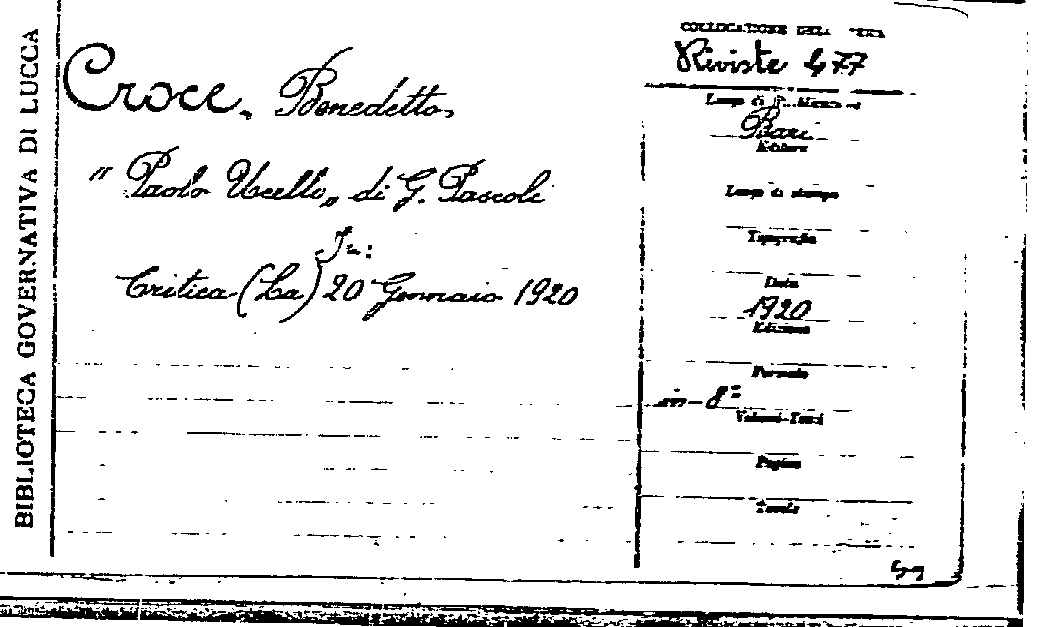 BIBLIOTECA GOVERNATIVA DI LUCCA
Croce, Benedetto,
"Paolo Ucello„ di G. Pascoli
In:
Critica (La) 20 Gennaio 1920
COLLOCAZIONE DELL'OPERA
Riviste 477
Luogo di Pubblicazione
Bari
Editore
Luogo di stampa
Tipografia
Data
1920
Edizione
Formato
in-8°
Volumi-Tomi
Pagine
Tavole